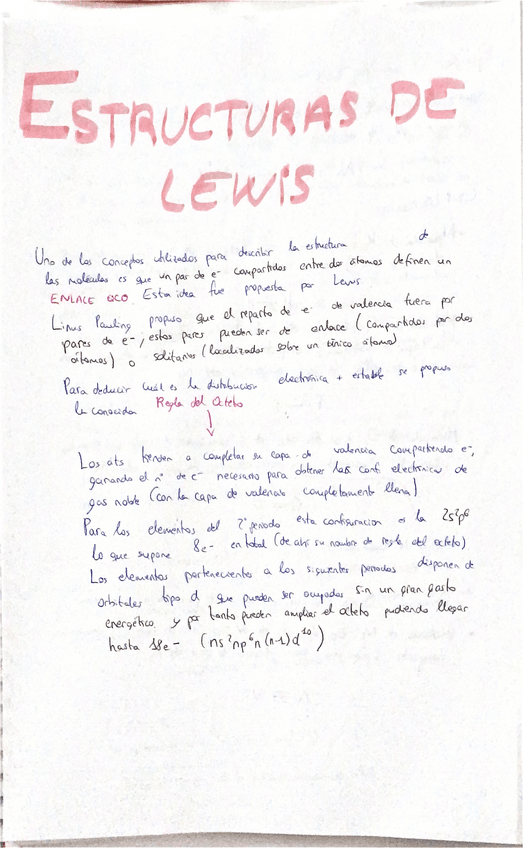 ESTRUCTURAS DE
LEWIS
Uno de los conceptos utilizados para describir la estructura de
las moléculas es que un par de e- compartidos entre dos átomos definen un
ENLACE QCO. Esta idea fue propuesta por Lewis
Linus Pauling propuso que el reparto de e- de valencia fuera por
pares de e-, estos pares pueden ser de enlace (compartidos por dos
átomos) o solitarios (localizados sobre un único átomo)
Para deducir cuál es la distribución electrónica + estable se propuso
la conocida Regla del Octeto
Los áts tienden a completar su capa de valencia compartiendo e-,
ganando el nº de e- necesario para obtener la conf electrónica de
gas noble (con la capa de valencia completamente llena)
Para los elementos del 2º periodo esta configuración es la 2s²p⁶
lo que supone 8e- en total (de ahí su nombre de regla del octeto)
Los elementos pertenecientes a los siguientes periodos disponen de
orbitales tipo d que pueden ser ocupados sin un gran gasto
energético y por tanto pueden ampliar el octeto pudiendo llegar
hasta 18e- (ns²np⁶n(n-1)d¹⁰)